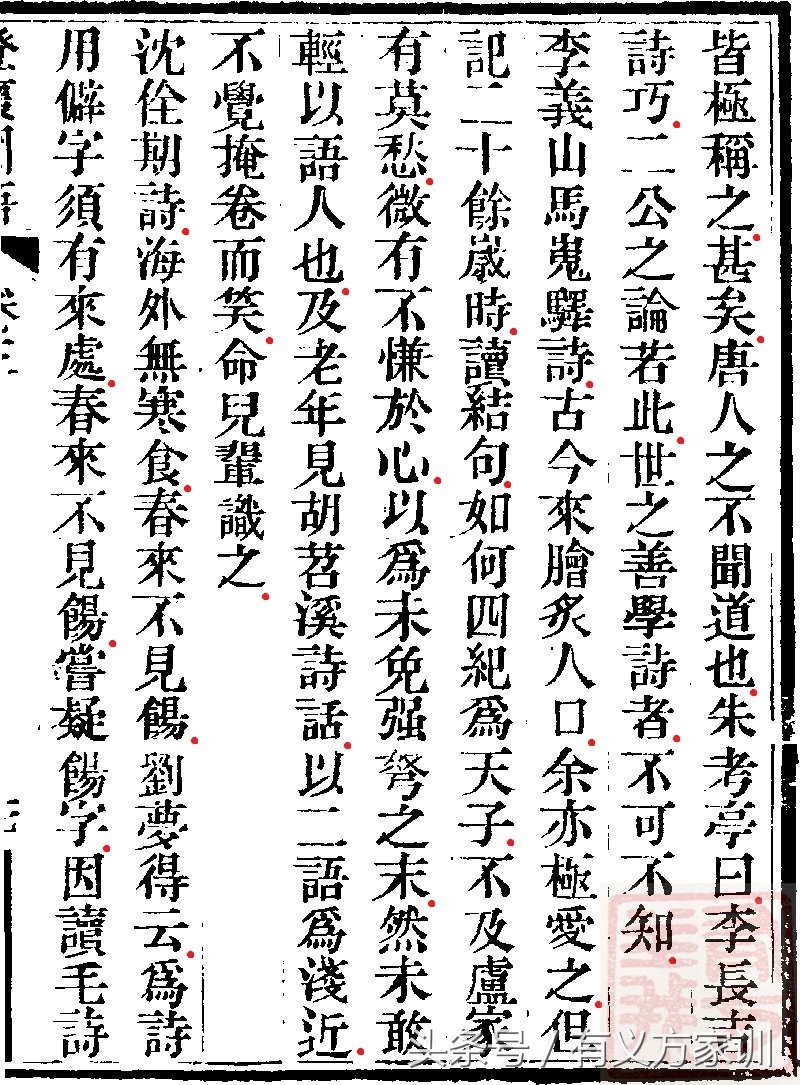 皆極稱之甚矣唐人之不聞道也朱考亭曰李長吉
詩巧二公之論若此世之善學詩者不可不知
李義山馬嵬驛詩古今來膾炙人口余亦極愛之但
記二十餘歲時讀結句如何四紀爲天子不及盧家
有莫愁微有不慊於心以爲未免强弩之末然未敢
輕以語人也及老年見胡苕溪詩話以二語爲淺近
不覺掩卷而笑命兒輩識之
沈佺期詩海外無寒食春來不見餳劉夢得云爲詩
用僻字須有來處春來不見餳嘗疑餳字因讀毛詩
头条号/有义方家训